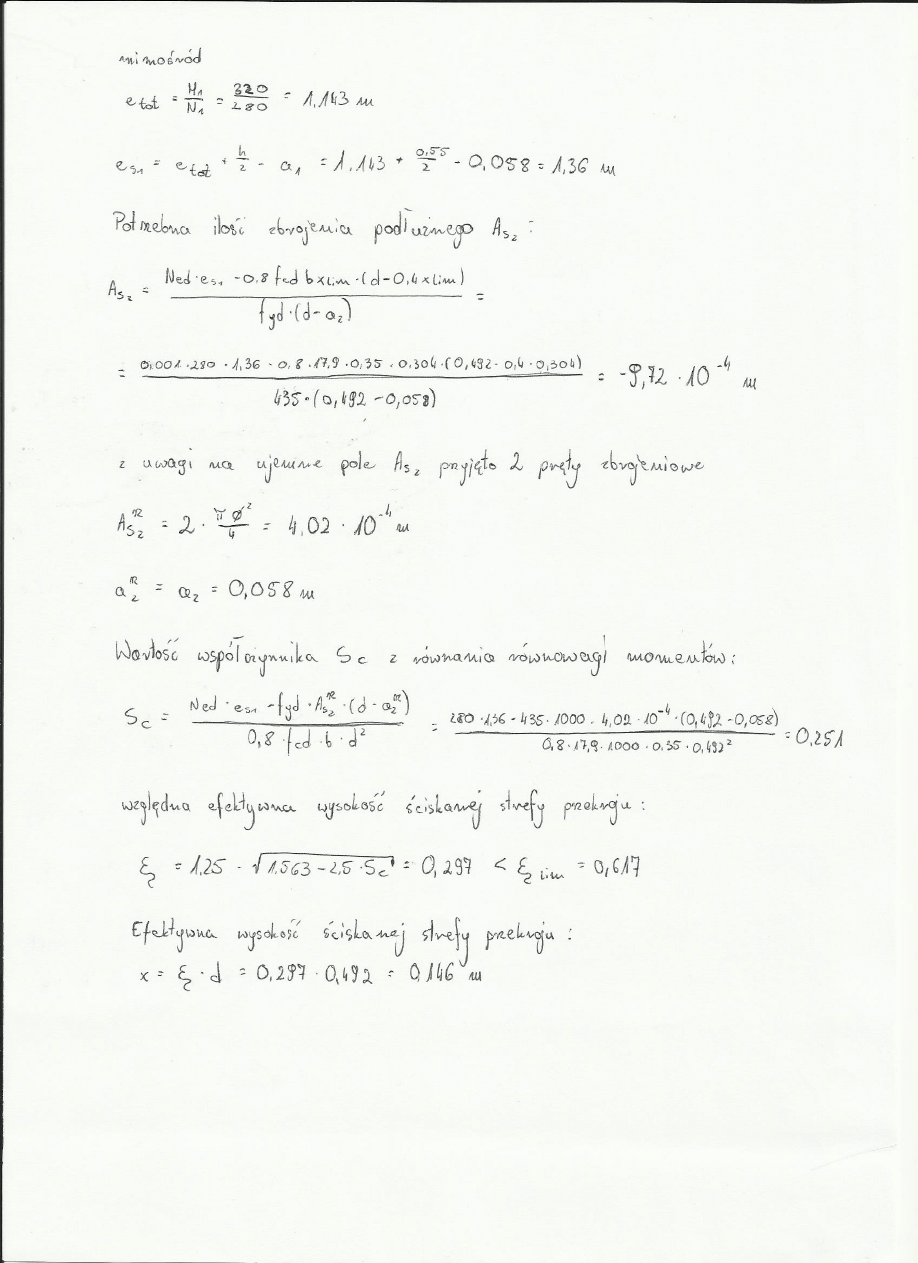 mimośród
e tot = M1/N1 = 320/280 = 1,143 m
es1 = etot + h/2 - a1 = 1,143 + 0,55/2 - 0,058 = 1,36 m
Potrzebna ilość zbrojenia podłużnego As2 :
As2 = (Ned·es1 - 0,8 fcd b xlim·(d-0,4 xlim))/(fyd·(d-a2)) =
= (0,001·280·1,36 - 0,8·17,9·0,35·0,304·(0,492-0,4·0,304))/(435·(0,492-0,058)) = -9,72·10^-4 m
z uwagi na ujemne pole As2 przyjęto 2 pręty zbrojeniowe
As2^rz = 2 · πϕ²/4 = 4,02 · 10^-4 m
a2^rz = a2 = 0,058 m
Wartość współczynnika Sc z równania równowagi momentów:
Sc = (Ned·es1 - fyd·As2^rz·(d-a2^rz))/(0,8·fcd·b·d²) = (280·1,36 - 435·1000·4,02·10^-4·(0,492-0,058))/(0,8·17,9·1000·0,35·0,492²) = 0,251
względna efektywna wysokość ściskanej strefy przekroju :
ξ = 1,25 - √(1,563-2,5·Sc) = 0,297 < ξ lim = 0,617
Efektywna wysokość ściskanej strefy przekroju :
x = ξ · d = 0,297 · 0,492 = 0,146 m